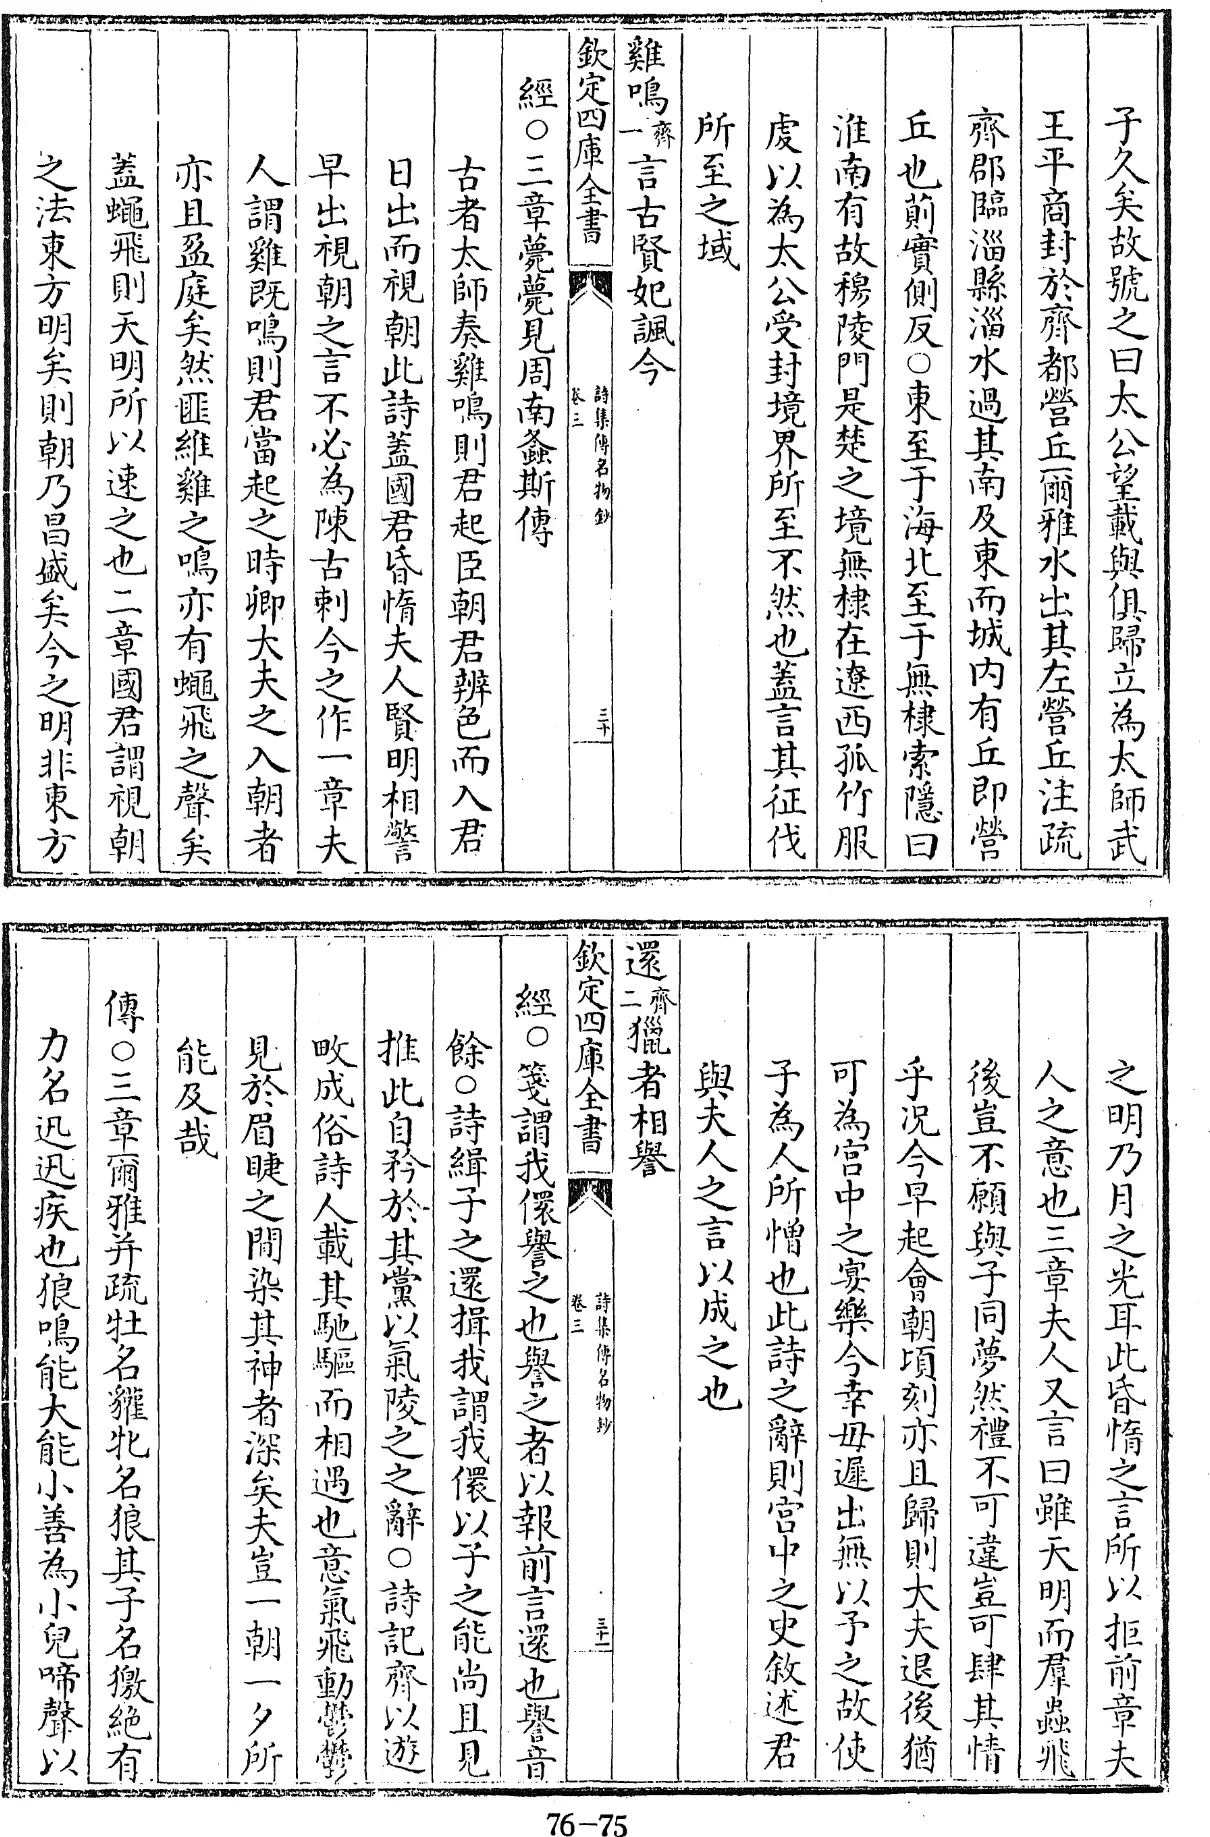 子久矣故號之曰太公望載與俱歸立為太師武
王平商封於齊都營丘爾雅水出其左營丘注疏
齊郡臨淄縣淄水過其南及東而城内有丘即營
丘也萴實側反○東至于海北至于無棣索隱曰
淮南有故穆陵門是楚之境無棣在遼西孤竹服
虔以為太公受封境界所至不然也蓋言其征伐
所至之域
雞鳴齊一言古賢妃諷今
欽定四庫全書
詩集傳名物鈔
卷三
三十
經○三章薨薨見周南螽斯傳
古者太師奏雞鳴則君起臣朝君辨色而入君
日出而視朝此詩蓋國君昏惰夫人賢明相警
早出視朝之言不必為陳古刺今之作一章夫
人謂雞既鳴則君當起之時卿大夫之入朝者
亦且盈庭矣然匪維雞之鳴亦有蠅飛之聲矣
蓋蠅飛則天明所以速之也二章國君謂視朝
之法東方明矣則朝乃昌盛矣今之明非東方
之明乃月之光耳此昏惰之言所以拒前章夫
人之意也三章夫人又言曰雖天明而羣蟲飛
後豈不願與子同夢然禮不可違豈可肆其情
乎况今早起會朝頃刻亦且歸則大夫退後猶
可為宫中之宴樂今幸毋遲出無以予之故使
子為人所憎也此詩之辭則宫中之史敘述君
與夫人之言以成之也
還齊二獵者相譽
欽定四庫全書
詩集傳名物鈔
卷三
三十一
經○箋謂我儇譽之也譽之者以報前言還也譽音
餘○詩緝子之還揖我謂我儇以子之能尚且見
推此自矜於其黨以氣陵之之辭○詩記齊以遊
畋成俗詩人載其馳驅而相遇也意氣飛動鬱鬱
見於眉睫之間染其神者深矣夫豈一朝一夕所
能及哉
傳○三章爾雅并疏牡名貛牝名狼其子名獥絶有
力名迅迅疾也狼鳴能大能小善為小兒啼聲以
76-75